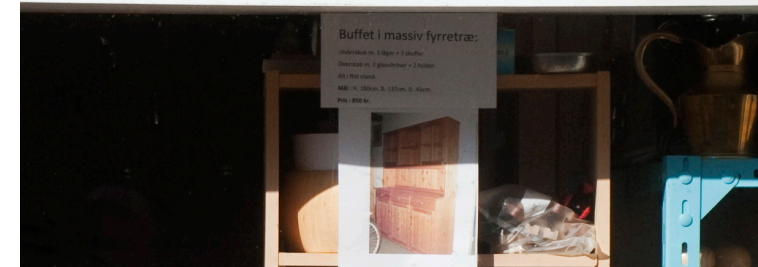 Buffet i massiv fyrretræ:
Underskab m. 3 låger + 3 skuffer.
Overskab m. 2 glasdøre + 2 hylder.
Alt i flot stand.
Mål : H. 180cm. B. 137cm. D. 45cm.
Pris : 850 kr.